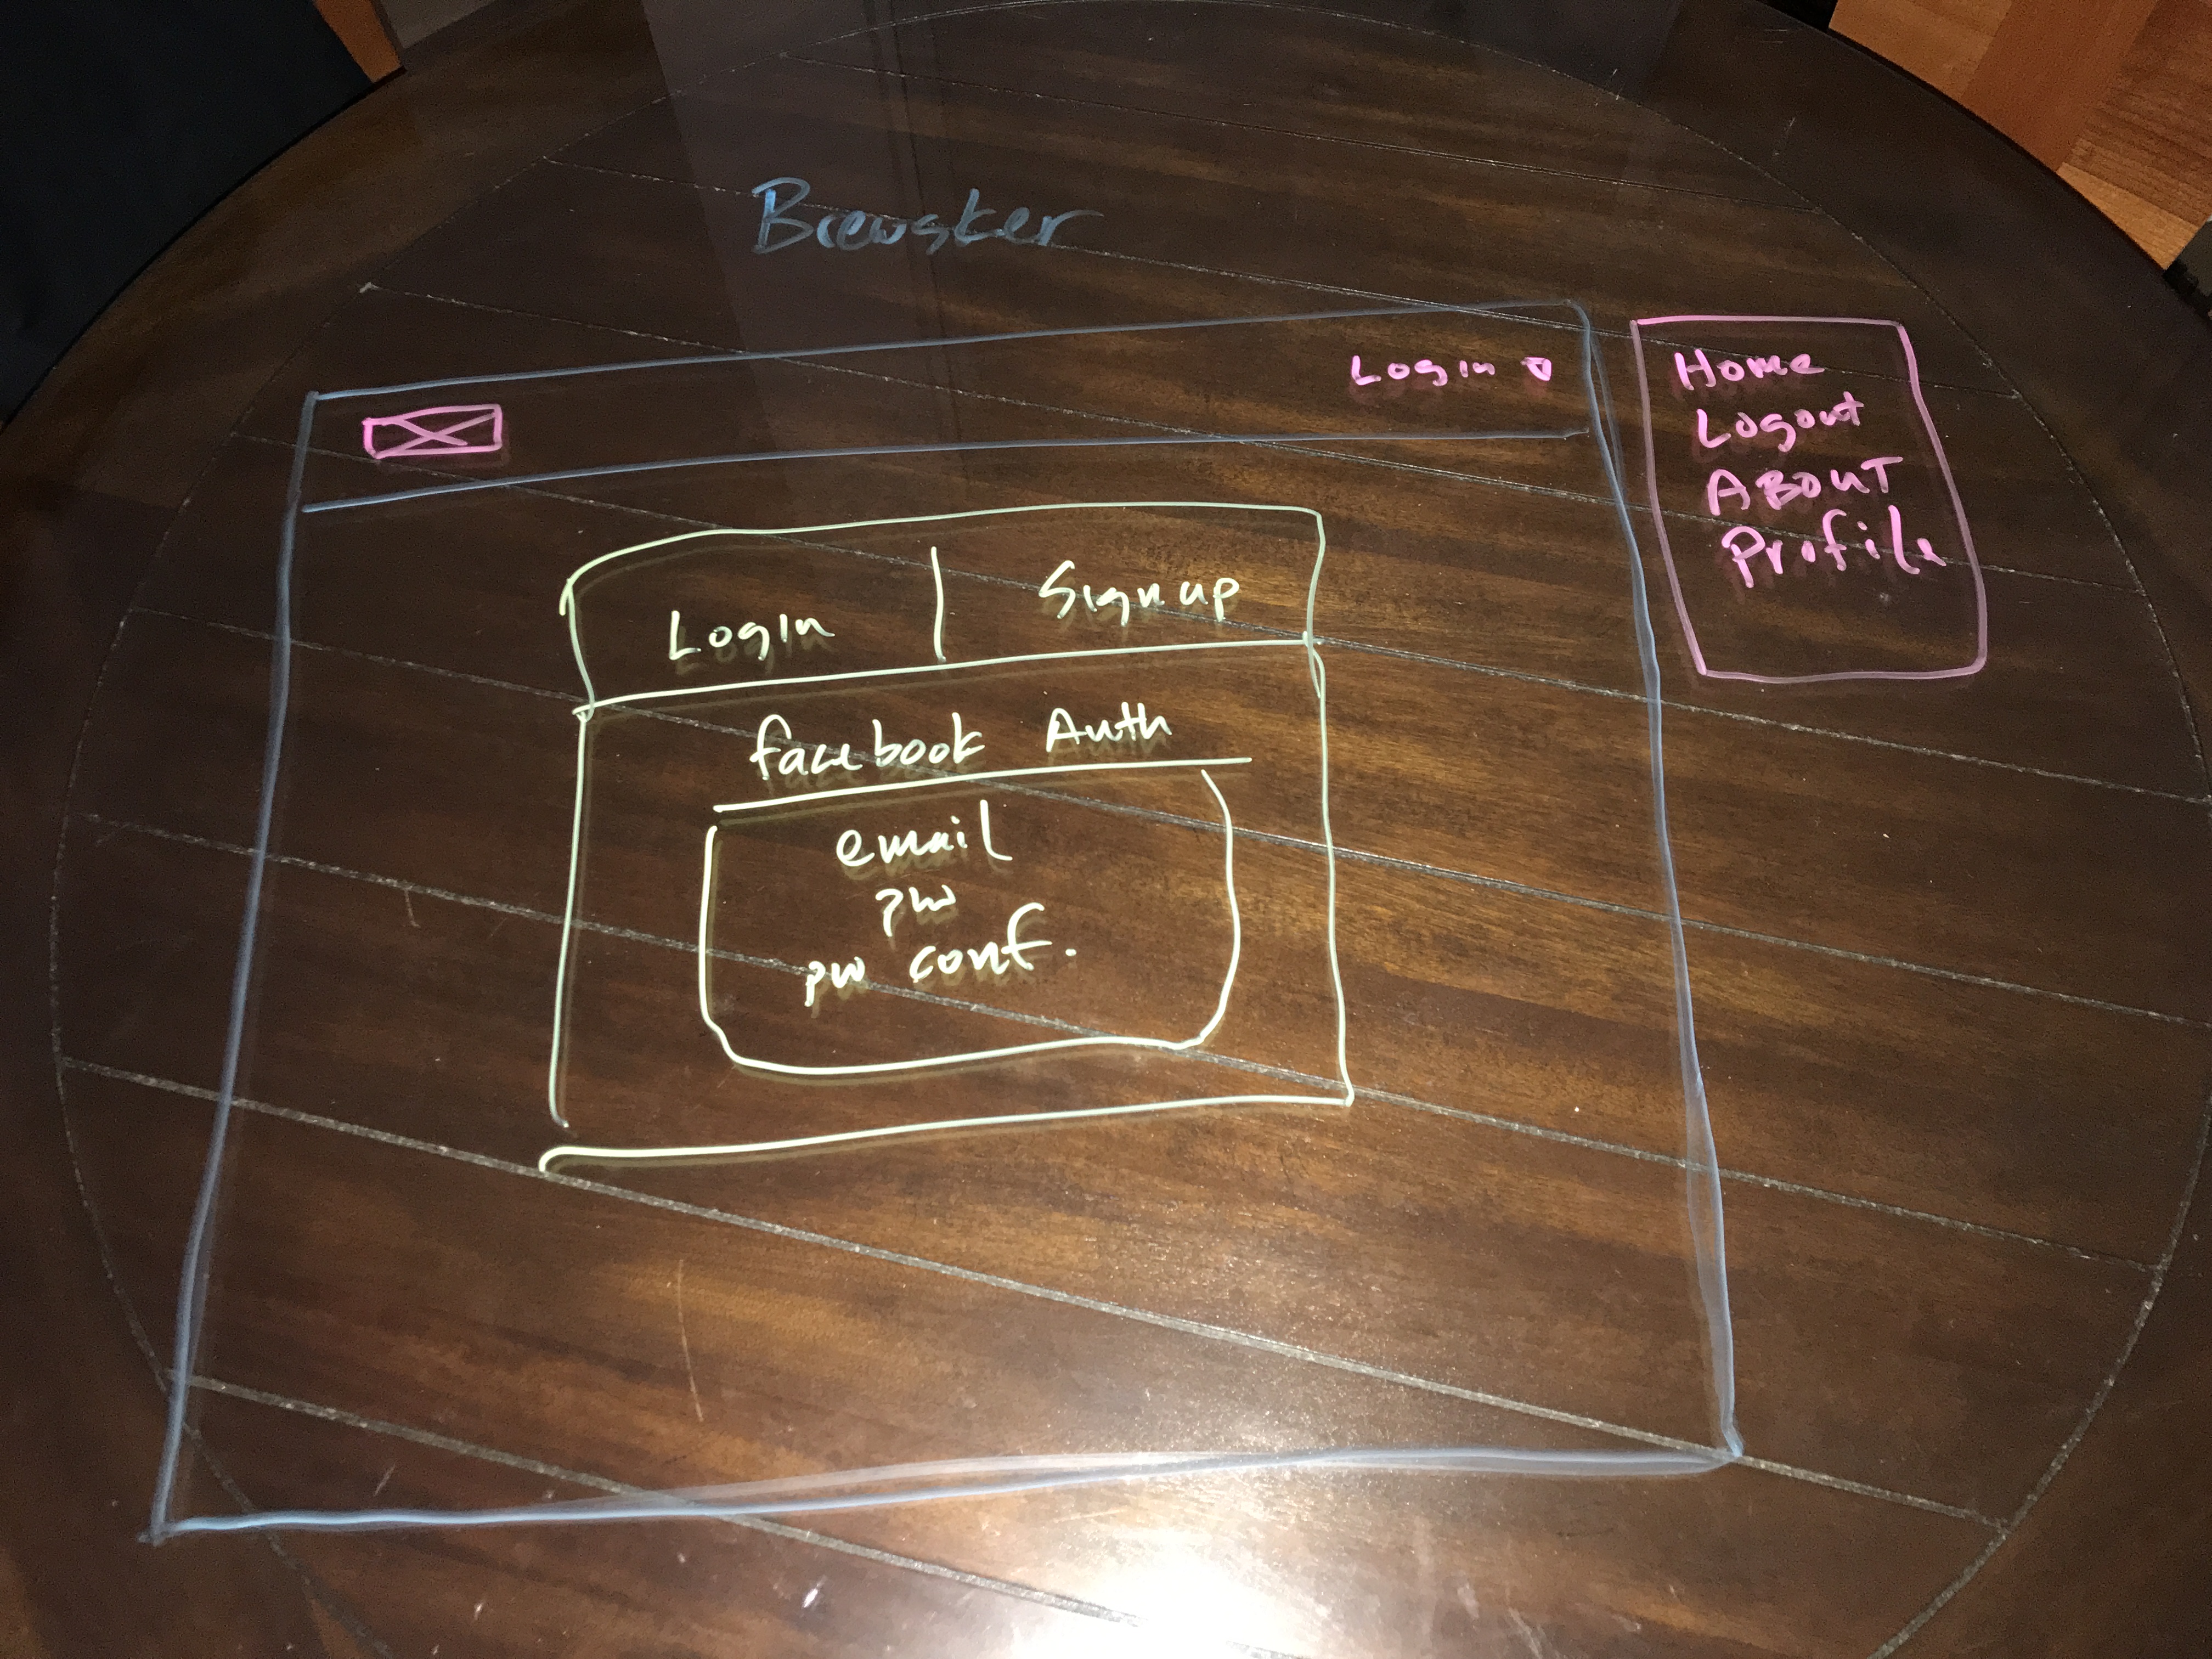 Brewsker
Login
Home
Logout
ABOUT
Profile
Login | Signup
facebook Auth
email
pw
pw conf.